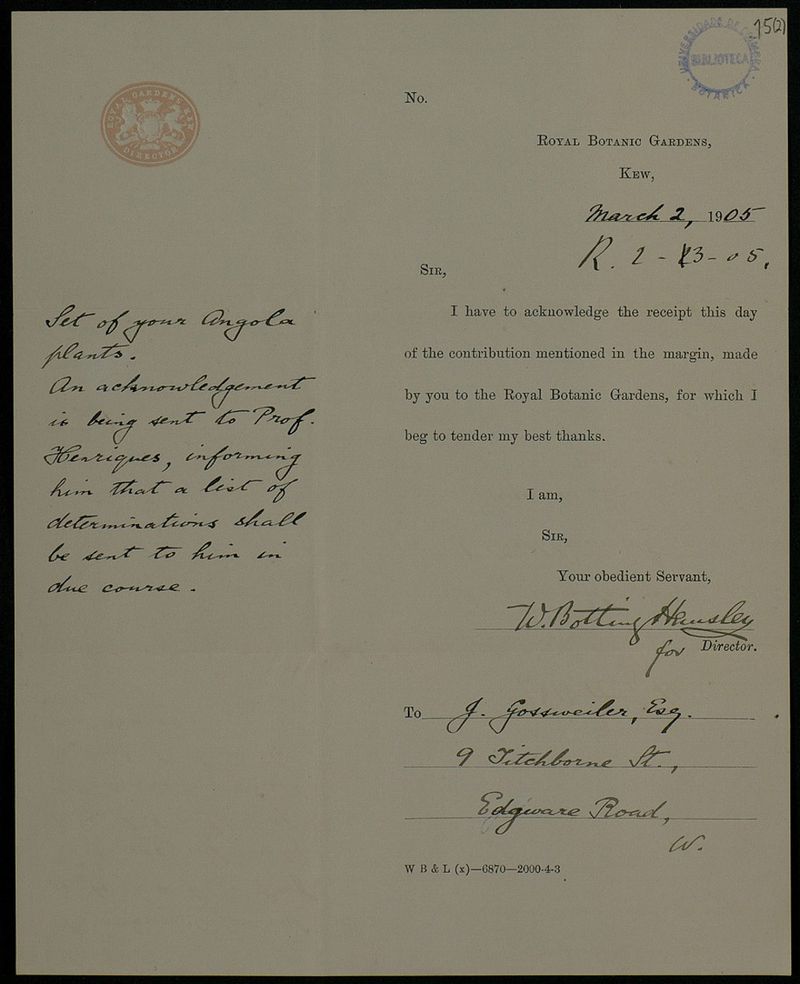 15(2)
UNIVERSIDADE DE COIMBRA
BIBLIOTECA
BOTANICA
ROYAL GARDENS KEW
DIRECTOR
No.
ROYAL BOTANIC GARDENS,
KEW,
March 2, 1905
R. 2-3-05.
SIR,
I have to acknowledge the receipt this day
of the contribution mentioned in the margin, made
by you to the Royal Botanic Gardens, for which I
beg to tender my best thanks.
I am,
SIR,
Your obedient Servant,
W. Botting Hemsley
for Director.
To J. Gossweiler, Esq.
9 Titchborne St.,
Edgware Road,
W.
W B & L (x)—6870—2000-4-3
Set of your Angola
plants.
An acknowledgement
is being sent to Prof.
Henriques, informing
him that a list of
determinations shall
be sent to him in
due course.